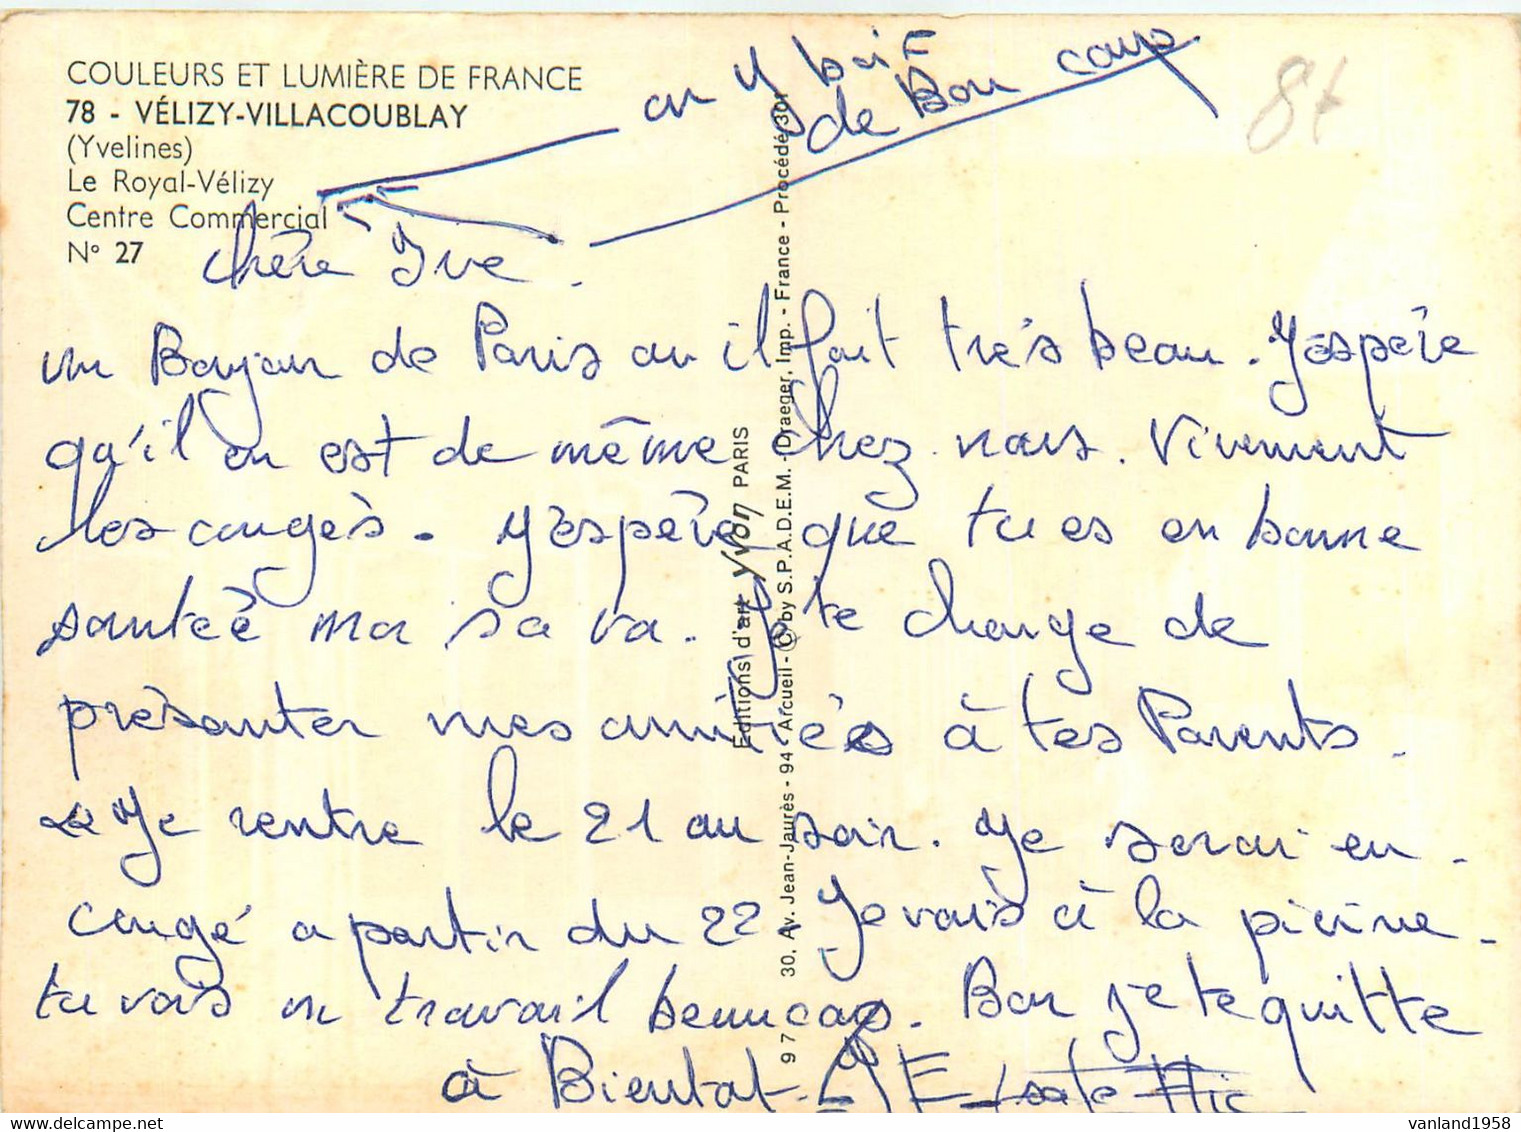 COULEURS ET LUMIÈRE DE FRANCE
78 - VÉLIZY-VILLACOUBLAY
(Yvelines)
Le Royal-Vélizy
Centre Commercial
N° 27
on y boit
de Bon coup
8f
chère Ive.
un Bonjour de Paris ou il fait très beau. J'espère
qu'il en est de même chez nous. Vivement
les congès. J'espère que tu es en bonne
santée ma sa va. Je te charge de
présenter mes amitiés à tes Parents.
Je rentre le 21 au soir. Je serai en
congé a partir du 22. Je vais à la picine.
tu vois on travail beaucop. Bon je te quitte
à Bientot.
Editions d'art Yvon PARIS
9 7 30, Av. Jean-Jaurès - 94 - Arcueil - © by S.P.A.D.E.M. - Draeger, Imp. - France - Procédé 301
vanland1958